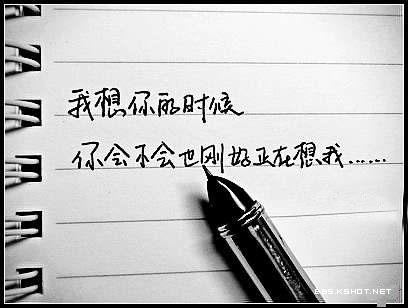 我想你的时候
你会不会也刚好正在想我……
BBS.KSHOT.NET